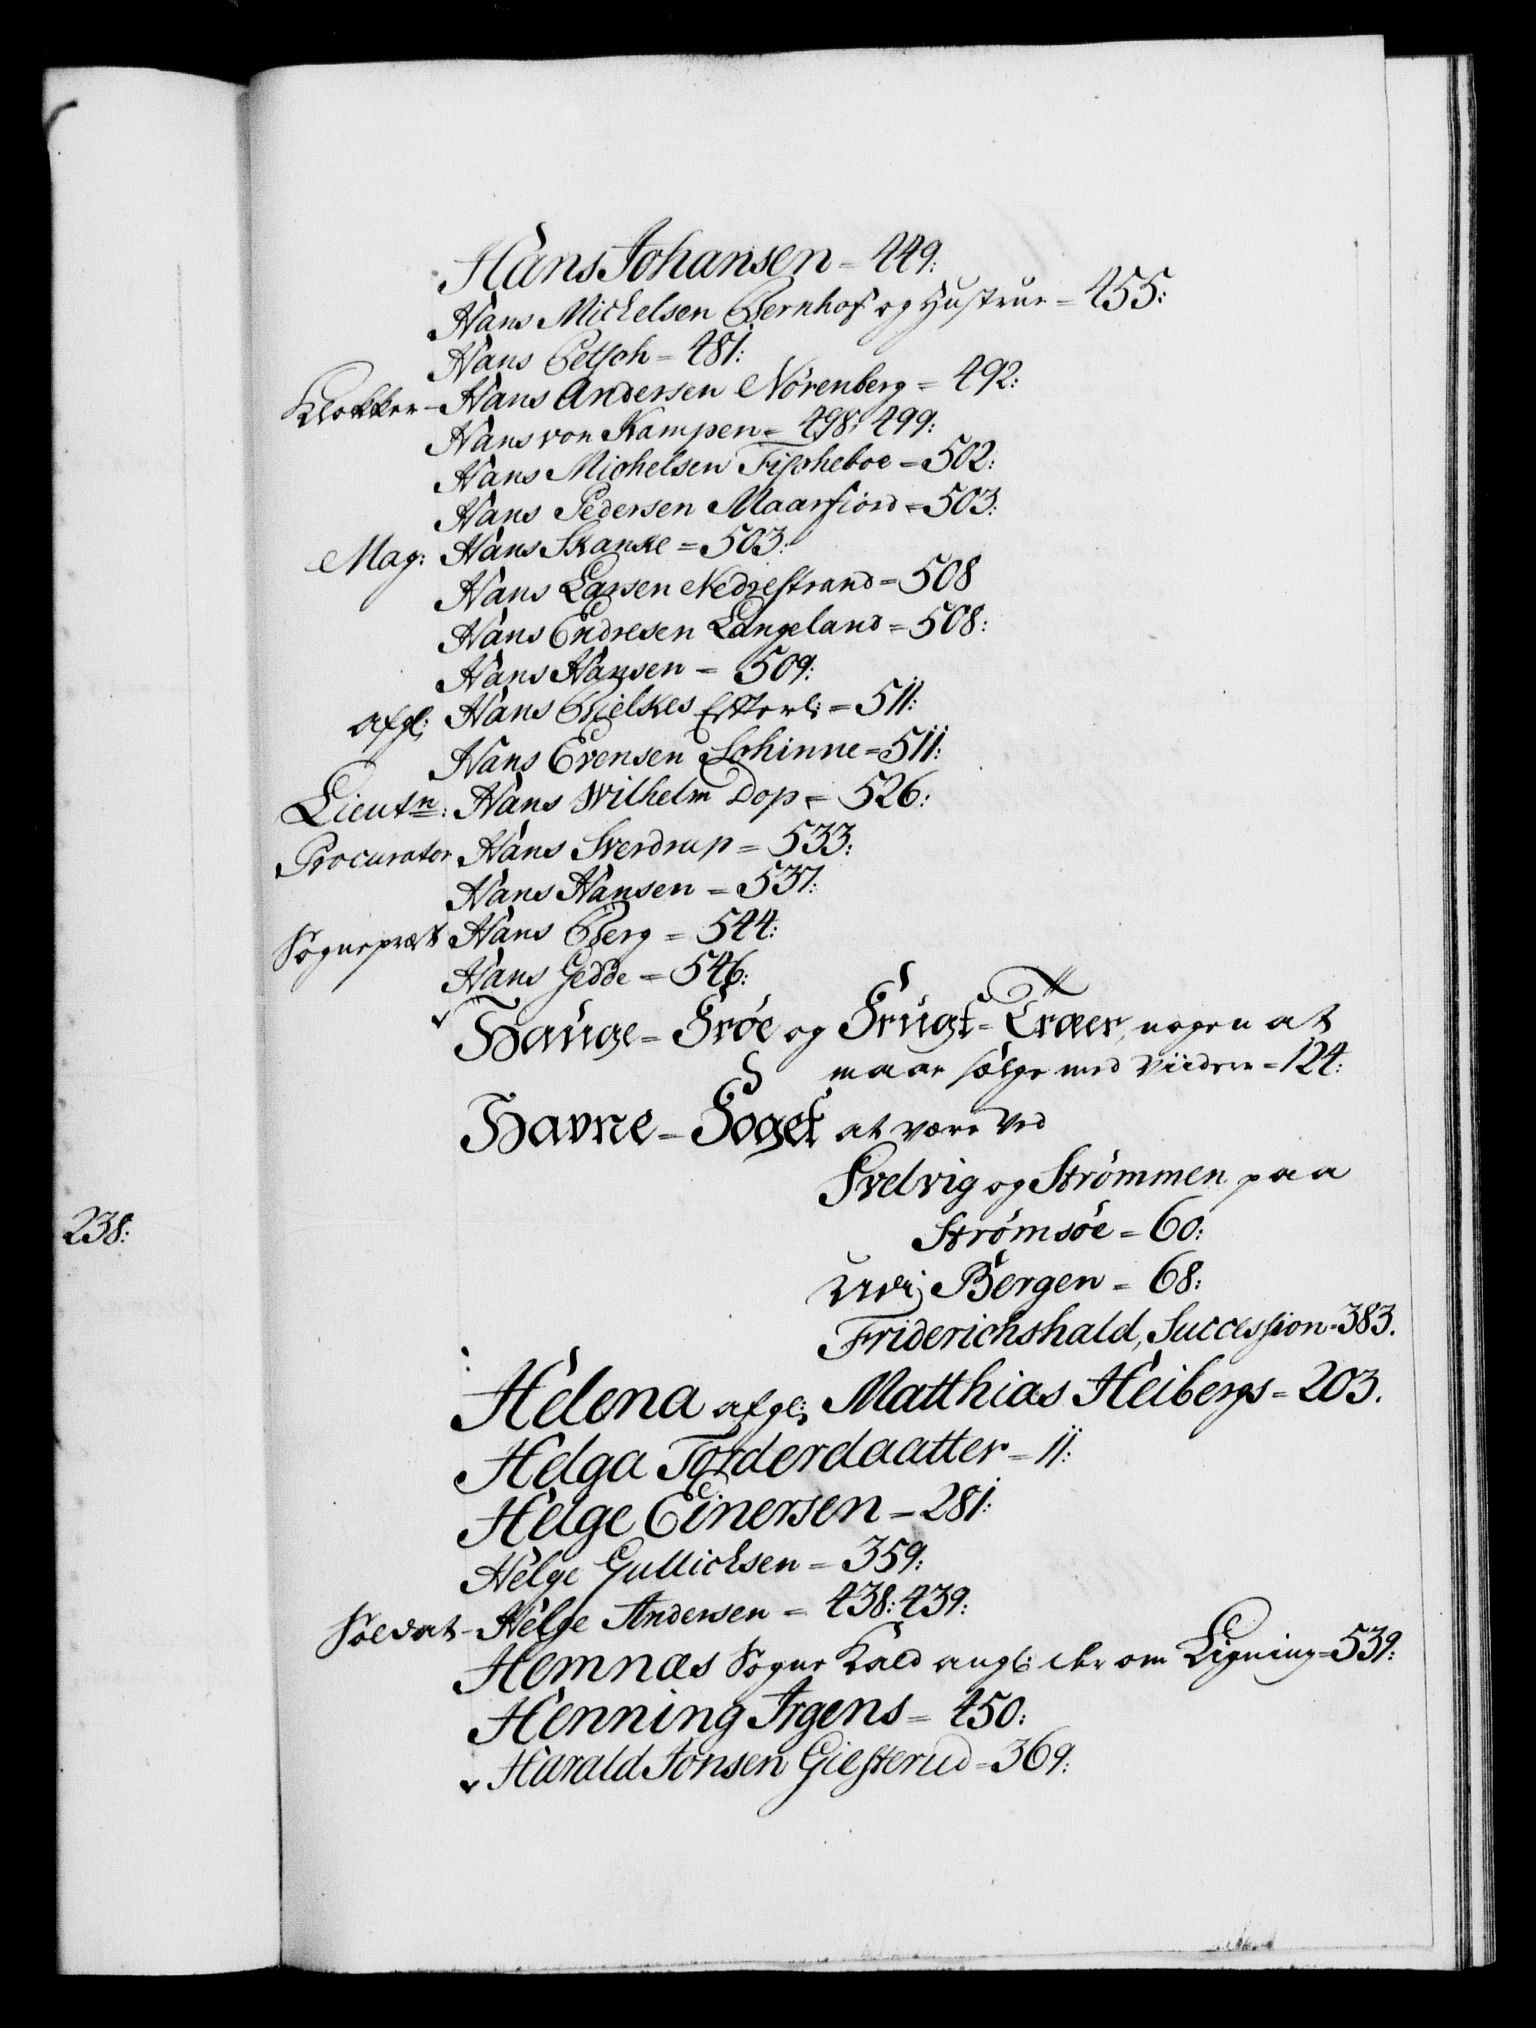 Hans Johansen = 449:
Hans Michelsen Bernhof og Hustrue = 455:
Hans Petsch = 481:
Klokker - Hans Andersen Nörenberg = 492:
Hans von Kampen = 498; 499:
Hans Michelsen Fischeboe = 502:
Hans Pedersen Maarfiord = 503:
Mag: Hans Skanke = 503:
Hans Larsen Nedrestrand = 508
Hans Endresen Langeland = 508:
Hans Hansen = 509:
afgl: Hans Bielkes Efterl: = 511:
Hans Evensen Schinne = 511:
Lieutn: Hans Wilhelm Dop = 526:
Procurator Hans Sverdrup = 533:
Hans Hansen = 537:
Sognepræst Hans Berg = 544:
Hans Gedde = 546:
Hauge = Frøe og Frugt = Træer, nogen at
maae sælge med Viidere = 124:
Havne = Foget at være ved
Svelvig og Strömmen paa
Strömsöe = 60:
Udi Bergen = 68:
Friderichshald, Succession = 383.
Helena afgl: Matthias Heibergs = 203.
Helga Torderdaatter = 11:
Helge Einersen = 281:
Helge Gullichsen = 359:
Soldat - Helge Andersen = 438: 439:
Hemnæs Sogne Kald angl: om Ligning = 539:
Henning Irgens = 450:
Harald Jonsen Giesterud = 369:
238: